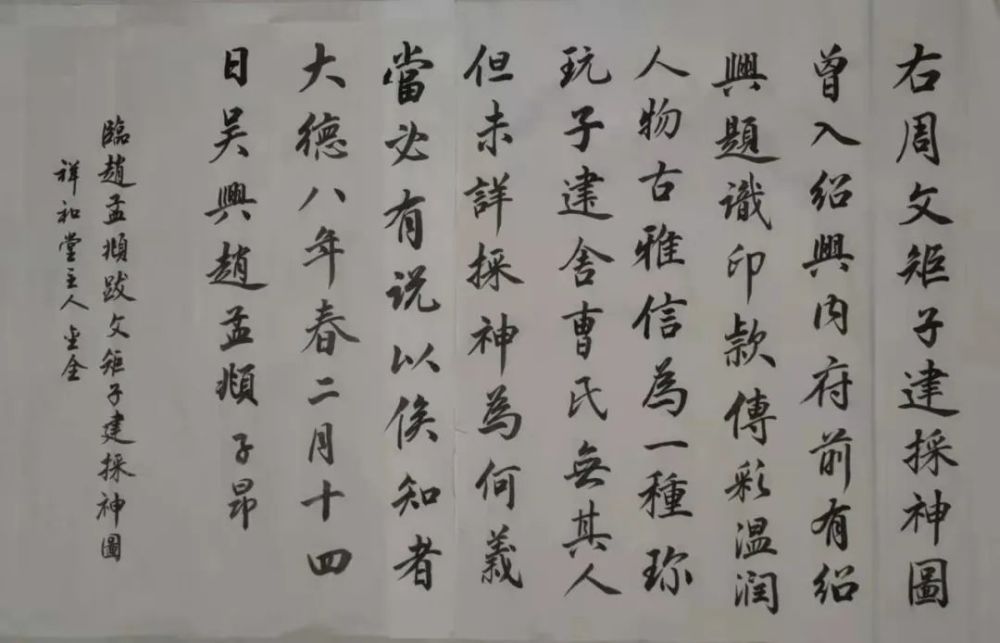 右周文矩子建採神圖
曾入紹興内府前有紹
興題識印款傅彩温潤
人物古雅信為一種珎
玩子建舍曹氏無其人
但未詳採神為何義
當必有説以俟知者
大德八年春二月十四
日吴興趙孟頫子昂
臨趙孟頫跋文矩子建採神圖
祥和堂主人金